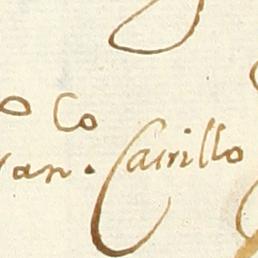 co
an. Carrillo